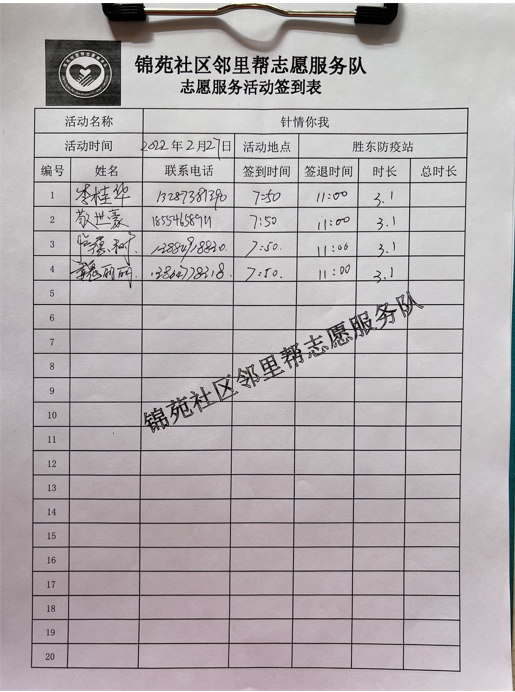 锦苑社区邻里帮志愿服务队
志愿服务活动签到表
活动名称 针情你我
活动时间 2022年2月27日 活动地点 胜东防疫站
编号 姓名 联系电话 签到时间 签退时间 时长 总时长
1 李桂华 13287381390 7:50 11:00 3.1
2 敬世豪 7:50 11:00 3.1
3 7:50. 11:00 3.1
4 丽丽 7:50. 11:00 3.1
5
6
7
8
9
10
11
12
13
14
15
16
17
18
19
20
锦苑社区邻里帮志愿服务队